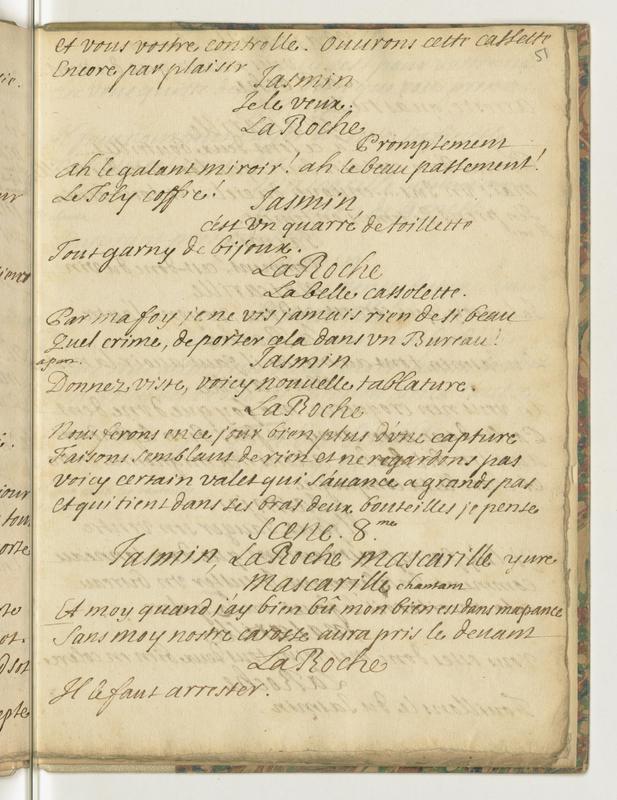 et vous vostre controlle. Ouurons cette cassette
51
Encore par plaisir
Jasmin
Je le veux.
La Roche
Promptement
Ah le galant miroir! ah le beau passement!
Le Joly coffre!
Jasmin
c'est vn quarré de toillette
Tout garny de bijoux.
La Roche
La belle cassolette.
Par ma foy je ne vis jamais rien de si beau
Quel crime, de porter cela dans vn Bureau!
apart.
Jasmin
Donnez viste, voicy nouvelle tablature.
La Roche
Nous ferons en ce jour bien plus d'vne capture
Faisons semblant de rien et ne regardons pas
Voicy certain valet qui s'auance a grands pas
Et qui tient dans ses bras deux bouteilles je pense
Scene. 8.me
Jasmin, La Roche mascarille yure
Mascarille chantant
Et moy quand j'ay bien bû mon bien est dans ma pance
Sans moy nostre carosse aura pris le deuant
La Roche
Il le faut arrester.